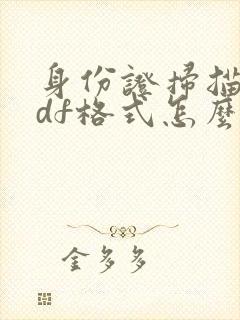 身份證掃描
df格式怎麼
金多多